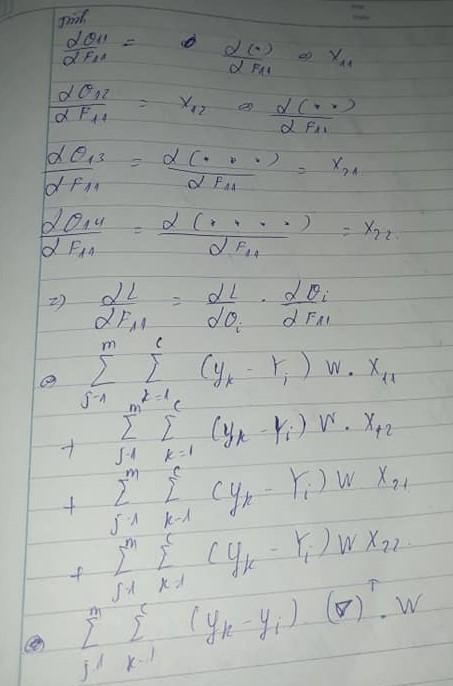 tính
∂O11/∂F11 = ∂(•)/∂F11 = X11
∂O12/∂F11 = X12 = ∂(• •)/∂F11
∂O13/∂F11 = ∂(• • •)/∂F11 = X21
∂O14/∂F11 = ∂(• • • •)/∂F11 = X22.
=) ∂L/∂F11 = ∂L/∂Oi . ∂Oi/∂F11
⇔ ∑_{j=1}^{m} ∑_{k=1}^{c} (yk - Yi) W. X11
+ ∑_{j=1}^{m} ∑_{k=1}^{c} (yk - Yi) W. X12
+ ∑_{j=1}^{m} ∑_{k=1}^{c} (yk - Yi) W X21
+ ∑_{j=1}^{m} ∑_{k=1}^{c} (yk - Yi) W X22.
⇔ ∑_{j=1}^{m} ∑_{k=1}^{c} (yk - yi) (∇)^T . W